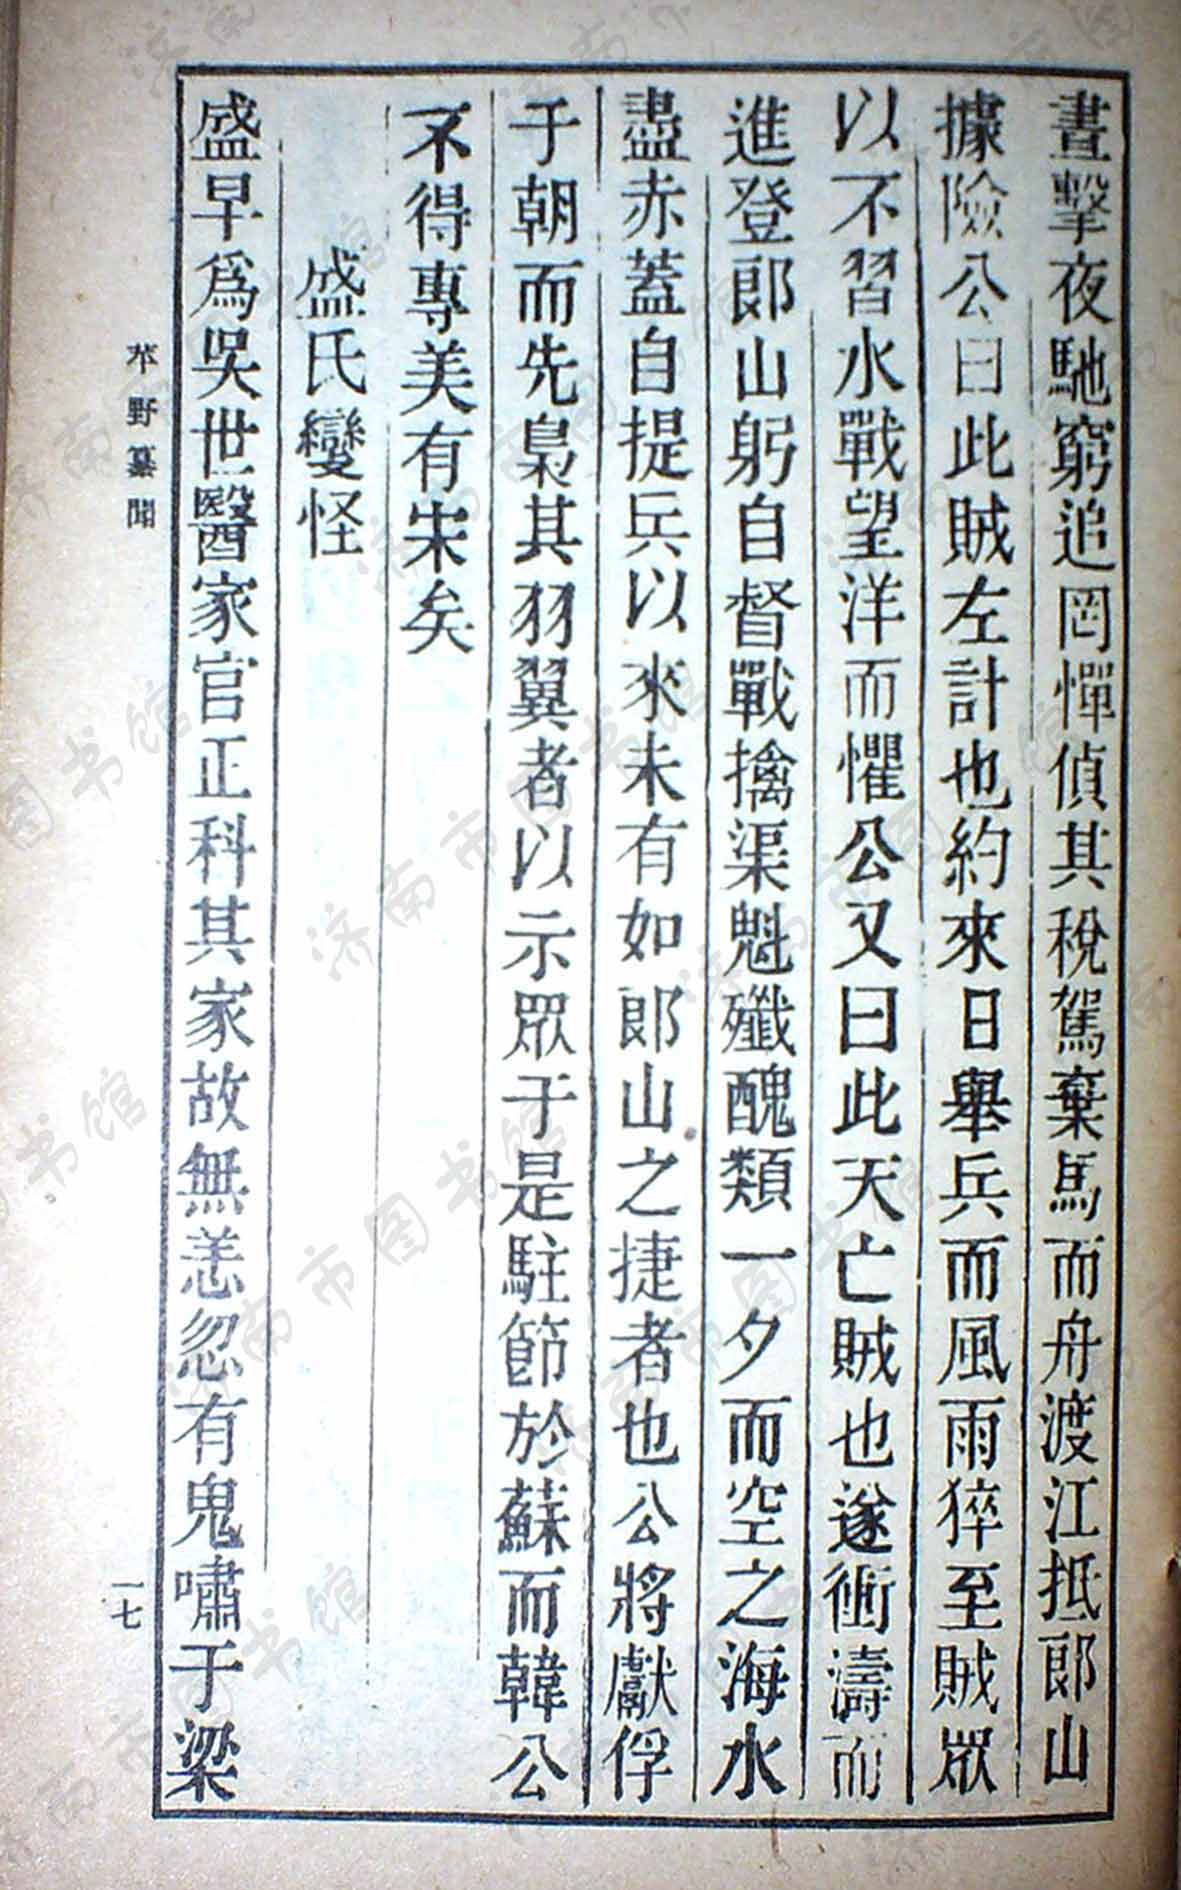 晝擊夜馳窮追罔憚偵其稅駕棄馬而舟渡江抵郎山
據險公曰此賊左計也約來日舉兵而風雨猝至賊眾
以不習水戰望洋而懼公又曰此天亡賊也遂衝濤而
進登郎山躬自督戰擒渠魁殲醜類一夕而空之海水
盡赤蓋自提兵以來未有如郎山之捷者也公將獻俘
于朝而先梟其羽翼者以示眾于是駐節於蘇而韓公
不得專美有宋矣
盛氏變怪
盛早爲吳世醫家官正科其家故無恙忽有鬼嘯于梁
苹野纂聞
一七
济南市图书馆